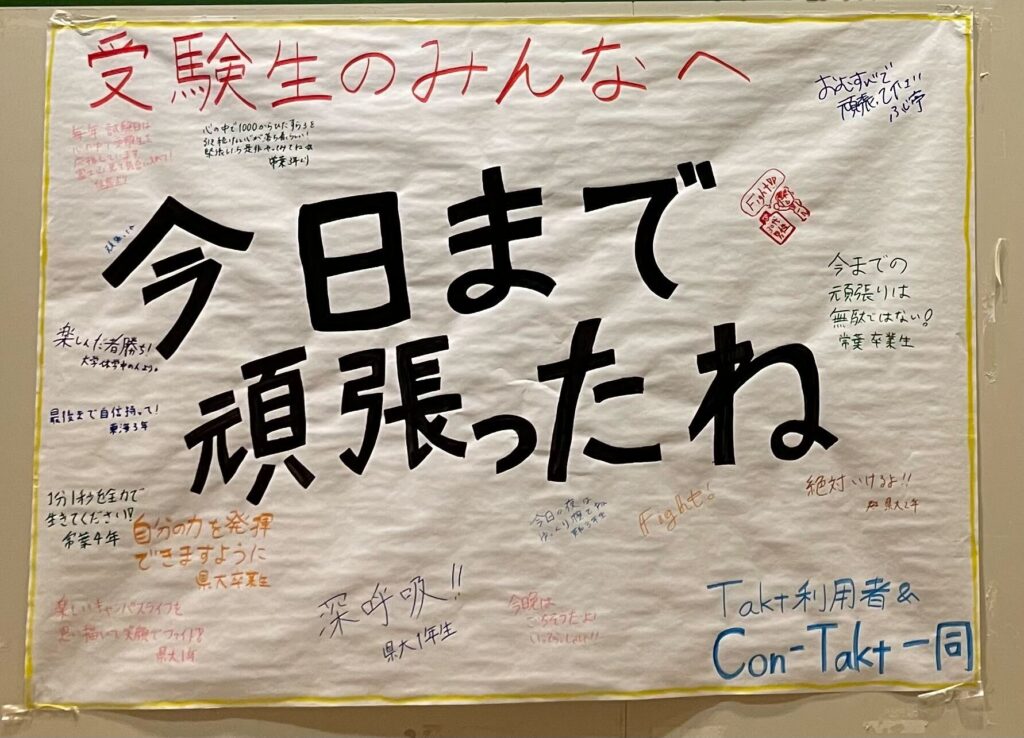 受験生のみんなへ
おむすびで
頑張って
心の中で1000からひたすら3を
常葉3年より
毎年試験日は
Fight!!
今日まで
頑張ったね
今までの
頑張りは
無駄ではない!
常葉卒業生
楽しんだ者勝ち!
大学休学中の人より。
最後まで自信持って!
東海3年
1分1秒を全力で
生きてください!!
常葉4年
自分の力を発揮
できますように
県大卒業生
今日の夜は
ゆっくり寝てね
Fight!
絶対いけるよ!!
県大2年
楽しいキャンパスライフを
思い描いて笑顔でファイト!
県大1年
深呼吸!!
県大1年生
今晩は
ごちそうだよ!
いってらっしゃい!!
Takt利用者&
Con-Takt一同